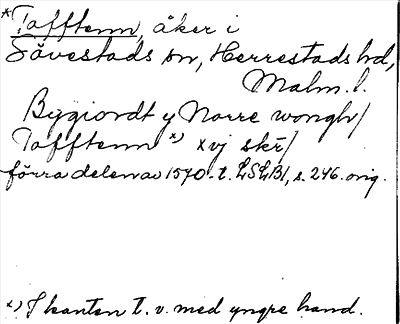 *Tofftenn, åker i
Sövestads sn, Herrestads hd,
Malm. l.
Bygiordt y Norre wongh/
Tofftenn x) xvj skr̃/
förra delen av 1570-t. LSLB1, s. 246. orig.
x) I kanten t. v. med yngre hand.